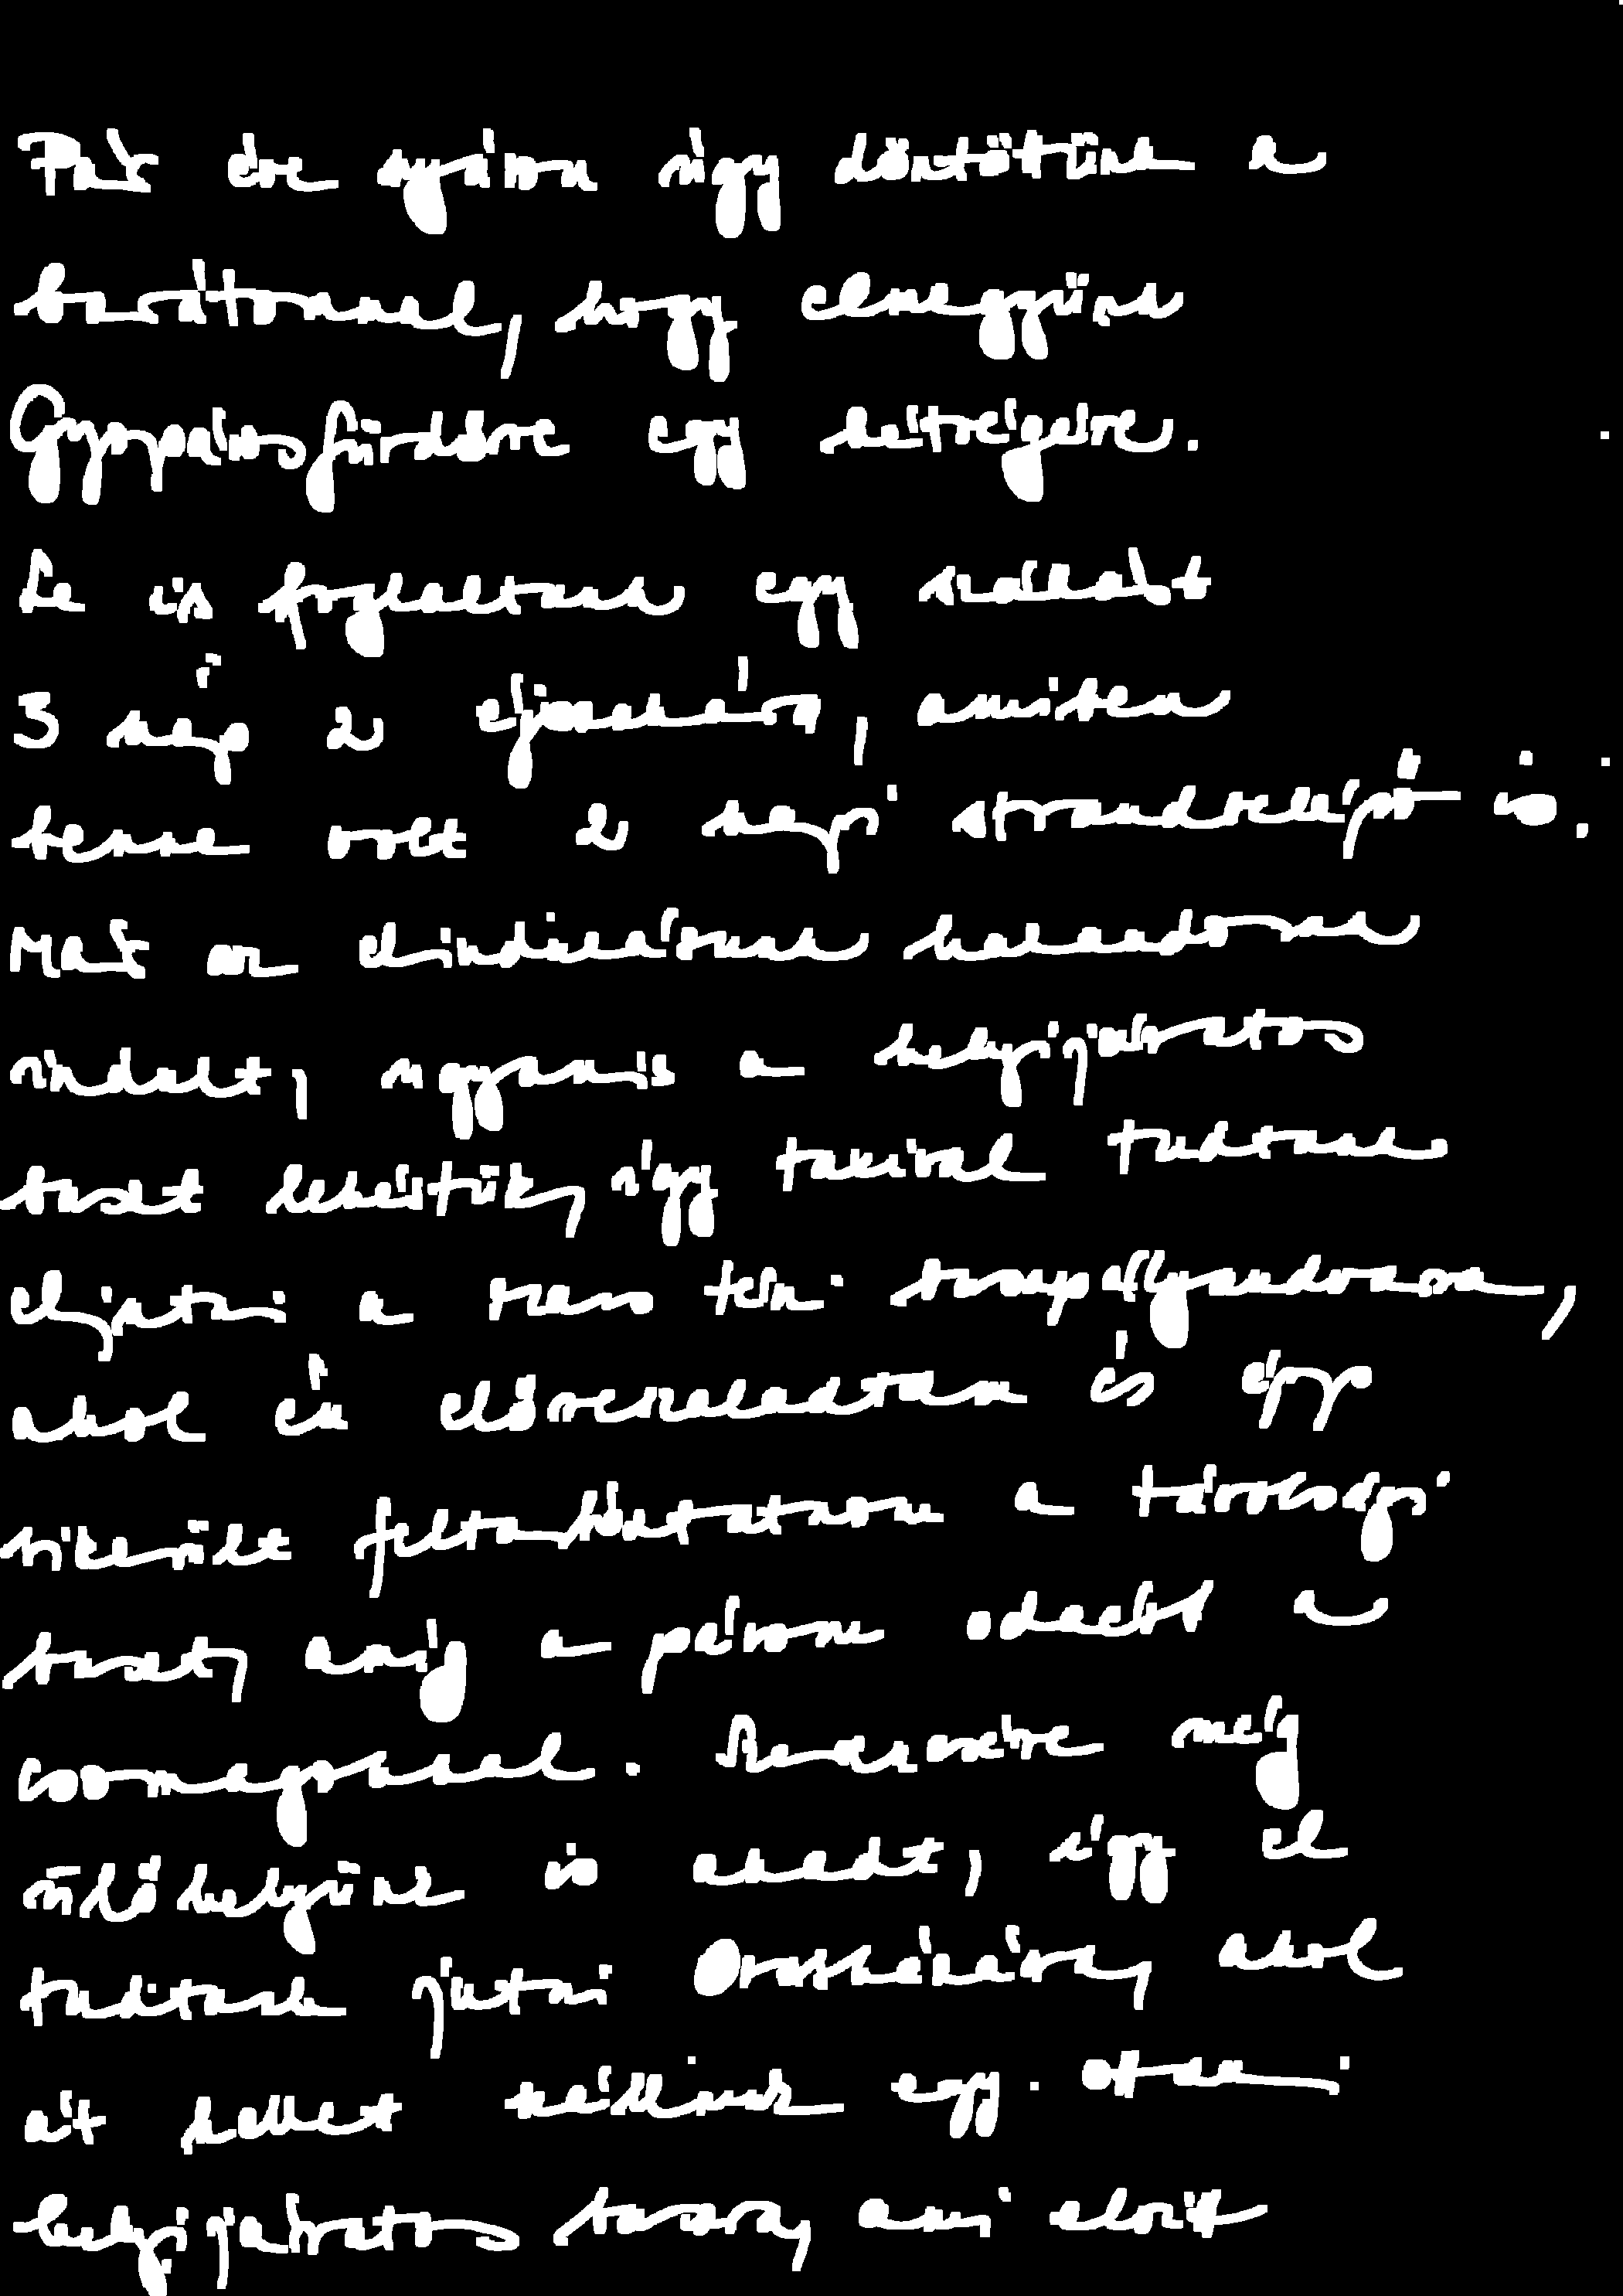 Pár éve nyáron úgy döntöttünk a
barátommal, hogy elmegyünk
Gyopárosfürdőre egy hétvégére.
Le is foglaltunk egy szállást
3 nap 2 éjszakára, amiben
benne volt 2 napi strandbelépő is.
Már az elindulásunk kalandosan
indult, ugyanis a helyijáratos
buszt lekéstük, így taxival tudtunk
eljutni a buszpályaudvarra,
ahol én előreszaladtam és épp
sikerült feltartóztatnom a távolsági
buszt, amíg a párom odaért a
csomagokkal. Szerencsére még
ülőhelyünk is akadt, így el
tudtunk jutni Orosházára, ahol
át kellett szállnunk egy ottani
helyijáratos buszra, ami elvitt